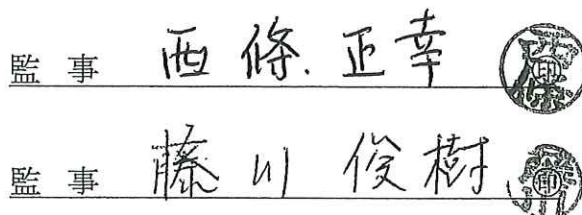 監事 西條 正幸 印
監事 藤川 俊樹 印